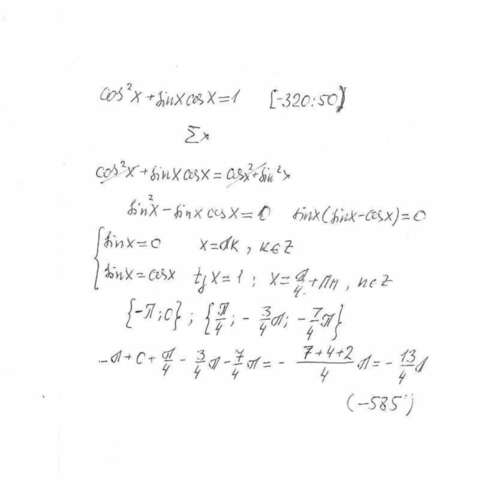 cos²x + sinx cosx = 1 [-320:50)
Σx
cos²x + sinx cosx = cos²x + sin²x
sin²x - sinx cosx = 0 sinx(sinx - cosx) = 0
{ sinx = 0 x = πk, k∈Z
sinx = cosx tgx = 1; x = π/4 + πn, n∈Z
{-π; 0}; {π/4; -3/4π; -7/4π}
-π + 0 + π/4 - 3/4π - 7/4π = - (7+4+2)/4 π = - 13/4 π
(-585°)